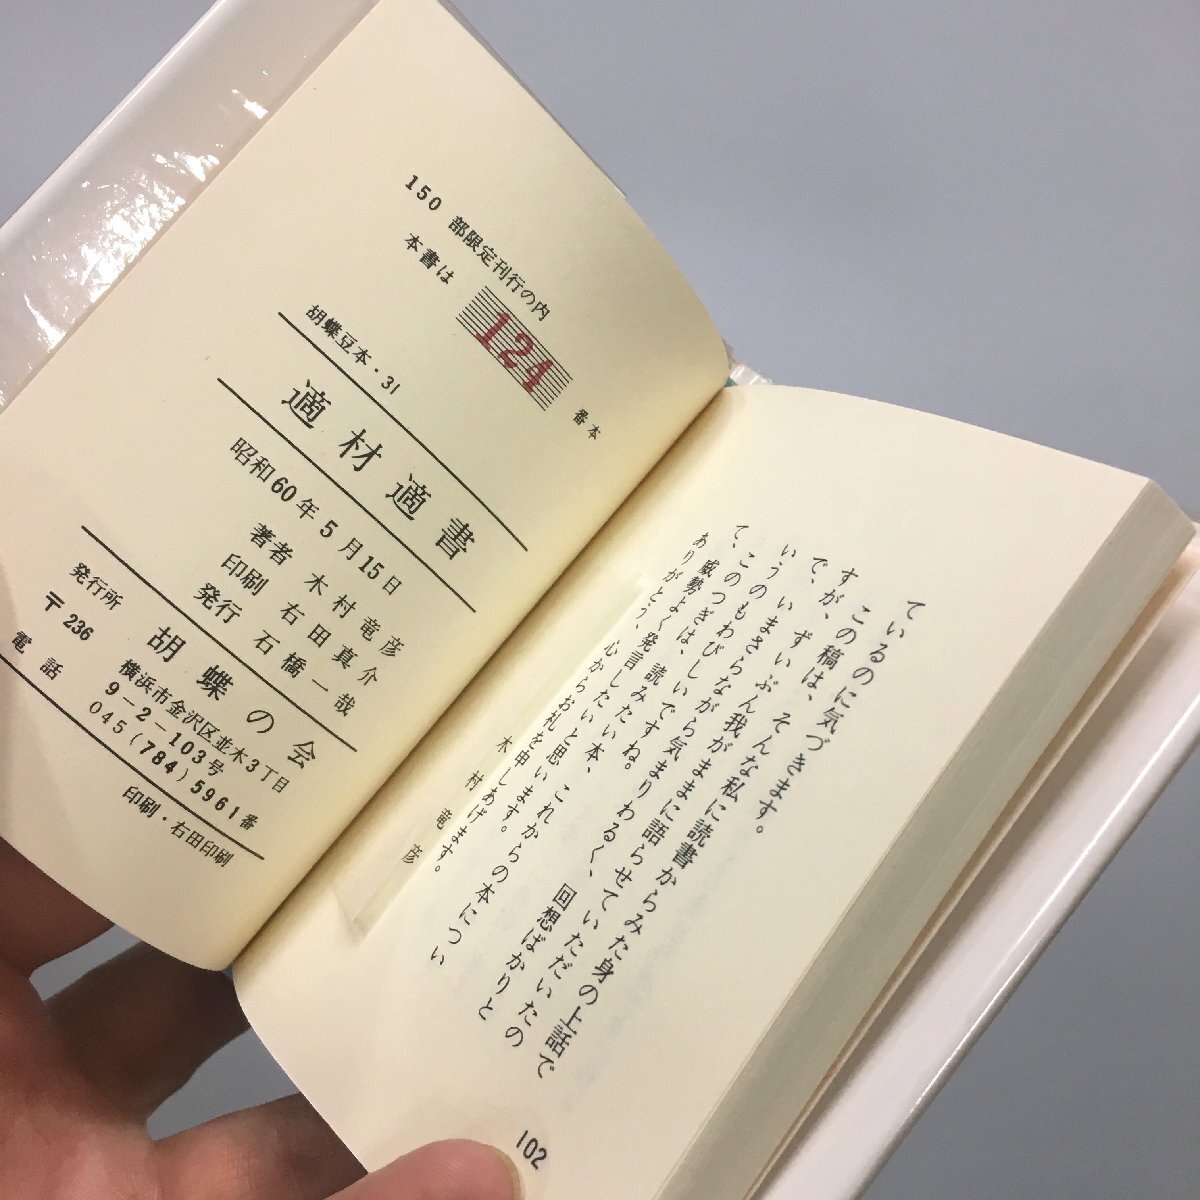 ているのに気づきます。
この稿は、そんな私に読書からみた身の上話で
すが、ずいぶん我がままに語らせていただいたの
で、いまさらながら気まりわるく、回想ばかりと
いうのもわびしいですね。
このつぎは、読みたい本、これからの本につい
て、威勢よく発言したいと思います。
ありがとう、心からお礼を申しあげます。
木村竜彦
102
150 部限定刊行の内
本書は 124 番本
胡蝶豆本・31
適材適書
昭和60年5月15日
著者 木村竜彦
印刷 右田真介
発行 石橋一哉
発行所 胡蝶の会
〒236 横浜市金沢区並木3丁目
9-2-103号
電話 045(784)5961番
印刷・右田印刷